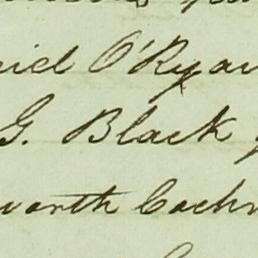 niel O'Ryan
G. Black
worth Cochr